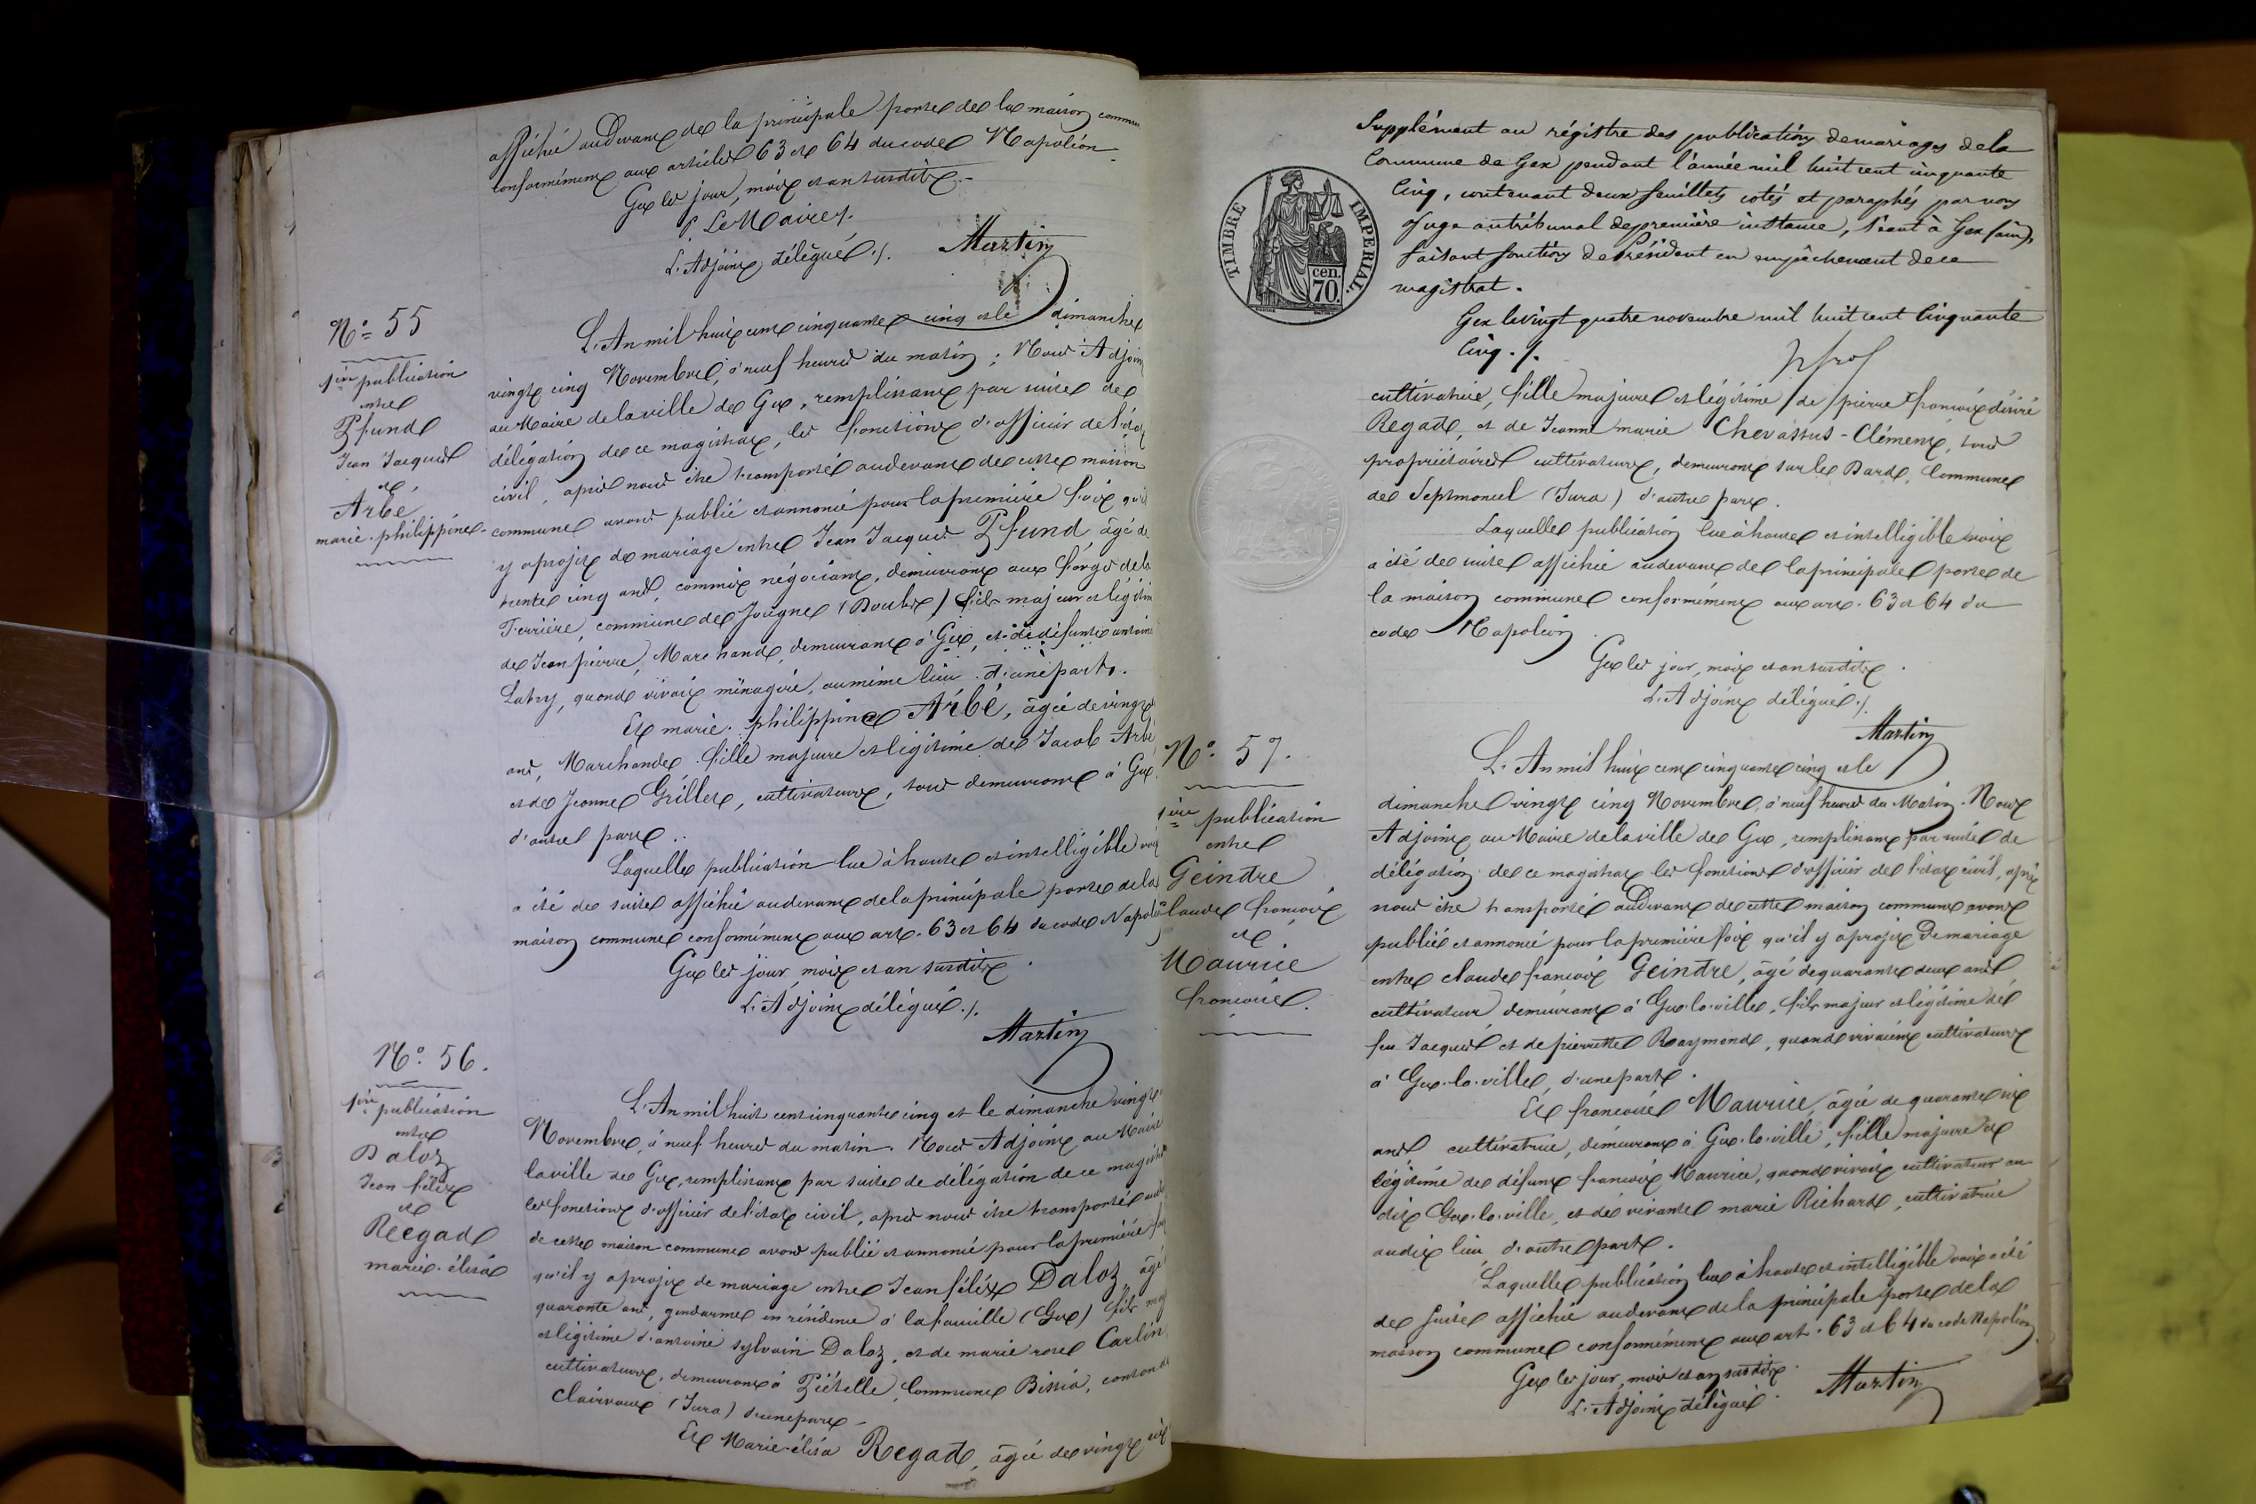 affiché audevant de la principale porte de la maison commune
conformément aux articles 63 et 64 du code Napoléon.
Gex les jour, mois et an susdits.-
P. Le Maire /.
L'Adjoint délégué /. Martin
N° 55
1ère publication
entre
Pfund
Jean Jacques
et
Arbé
marie-philippine-
L'An mil huit cent cinquante cinq et le dimanche
vingt cinq Novembre, à neuf heures du matin ; Nous Adjoint
au Maire de la ville de Gex, remplissant par suite de
délégation de ce magistrat, les fonctions d'officier de l'état
civil, après nous être transporté audevant de cette maison
commune avons publié et annoncé pour la première fois qu'il
y a projet de mariage entre Jean Jacques Pfund âgé de
trente cinq ans, commis négociant, demeurant aux forges de la
Ferrière, commune de Jougne (Doubs) fils majeur et légitime
de Jean pierre, Marchand, demeurant à Gex, et de défunte antoine
Latry, quand vivait ménagère, au même lieu d'une part.
Et marie-philippine Arbé, âgée de vingt
ans, Marchande fille majeure et légitime de Jacob Arbé
et de Jeanne Grillet, cultivateurs, tous demeurant à Gex
d'autre part.
Laquelle publication lue à haute et intelligible voix
a été de suite affiché audevant de la principale porte de la
maison commune conformément aux art. 63 et 64 du code Napoléon
Gex les jour, mois et an susdits.
L'Adjoint délégué /.
Martin
N° 56.
1ère publication
entre
Daloz
Jean félix
et
Regad
marie-élisa
L'An mil huit cent cinquante cinq et le dimanche vingt
Novembre, à neuf heures du matin. Nous Adjoint au Maire
la ville de Gex, remplissant par suite de délégation de ce magistrat
les fonctions d'officier de l'état civil, après nous être transporté
de cette maison commune avons publié et annoncé pour la première fois
qu'il y a projet de mariage entre Jean félix Daloz, âgé
quarante ans, gendarme en résidence à lafaucille (Gex) fils maj
et légitime d'antoine sylvain Daloz, et de marie rose Carlin
cultivateurs, demeurant à Piételle, Commune Bissia, canton de
Clairvaux (Jura) d'une part -
Et Marie-élisa Regad, âgée de vingt six
Supplément au régistre des publications de mariages de la
Commune de Gex pendant l'année mil huit cent cinquante
cinq, contenant deux feuillets cotés et paraphés par nous
Juge au tribunal de première instance, séant à Gex (ain),
faisant fonctions de Président en empêchement de ce
magistrat.
Gex le vingt quatre novembre mil huit cent cinquante
cinq. /.
TIMBRE IMPERIAL.
cen.
70.
cultivatrice, fille majeure et légitime de pierre françois désiré
Regad, et de Jeanne marie Chevassus-Clément, tous
propriétaires cultivateurs, demeurant sur les Dards, Commune
de Septmoncel (Jura) d'autre part.
Laquelle publication lue à haute et intelligible voix
a été de suite affichée audevant de la principale porte de
la maison commune conformément aux art. 63 et 64 du
code Napoléon
Gex les jour, mois et an susdits.
L'Adjoint délégué /.
Martin
N° 57.
1ère publication
entre
Geindre
Claude françois
et
Maurice
françoise.
L'An mil huit cent cinquante cinq et le
dimanche vingt cinq Novembre, à neuf heures du Matin. Nous
Adjoint au Maire de la ville de Gex, remplissant par suite de
délégation de ce magistrat les fonctions d'officier de l'état civil, après
nous être transporté audevant de cette maison commune avons
publié et annoncé pour la première fois qu'il y a projet de mariage
entre claude françois Geindre, âgé de quarante deux ans
cultivateur demeurant à Gex-la-ville, fils majeur et légitime de
feu Jacques et de pierrette Raymond, quand vivaient cultivateurs
à Gex-la-ville, d'une part.
Et françoise Maurice, âgée de quarante six
ans cultivatrice, demeurant à Gex-la-ville, fille majeure et
légitime de défunt françois Maurice, quand vivait cultivateur au
dit Gex-la-ville, et de vivante marie Richard, cultivatrice
audit lieu, d'autre part.
Laquelle publication lue à haute et intelligible voix a été
de suite affichée audevant de la principale porte de la
maison commune conformément aux art. 63 et 64 du code Napoléon
Gex les jour, mois et an susdits.
L'Adjoint délégué. Martin